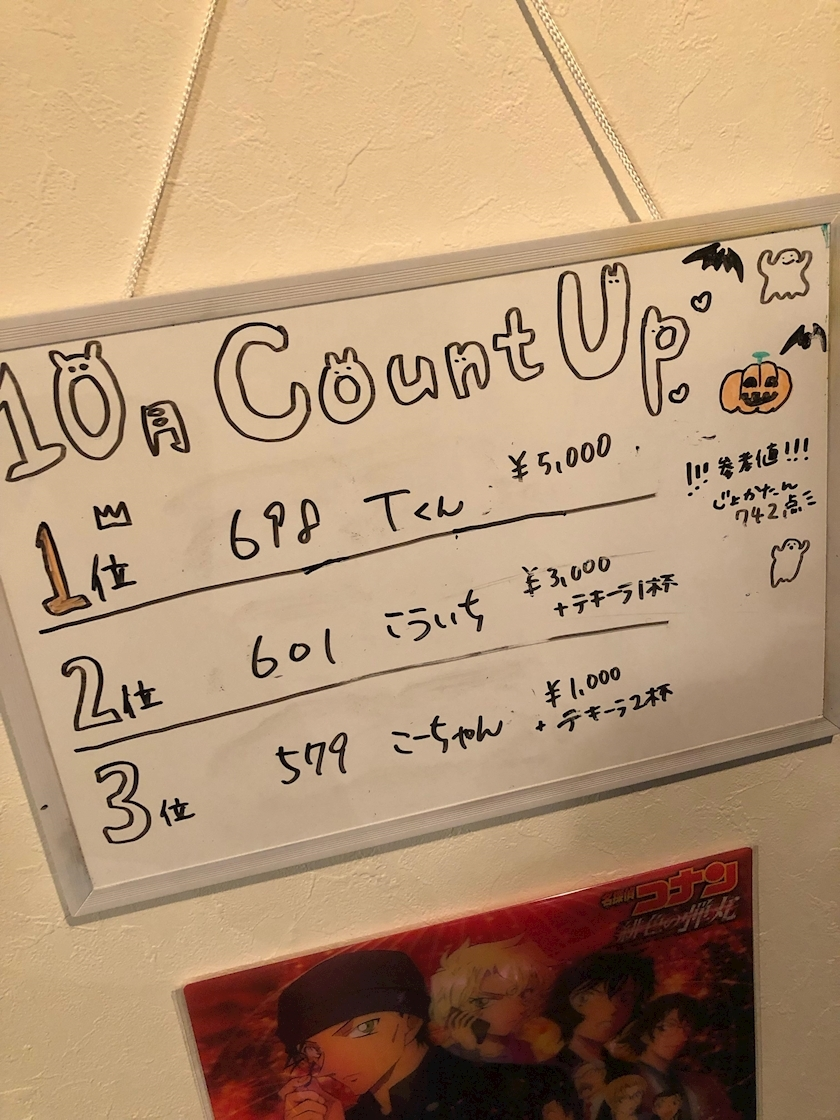 10月 Count Up
1位 698 Tくん ¥5,000
2位 601 こういち ¥3,000
+テキーラ1杯
3位 579 こーちゃん ¥1,000
+テキーラ2杯
!!!参考値!!!
じょかたん
742点
名探偵
コナン
緋色の弾丸